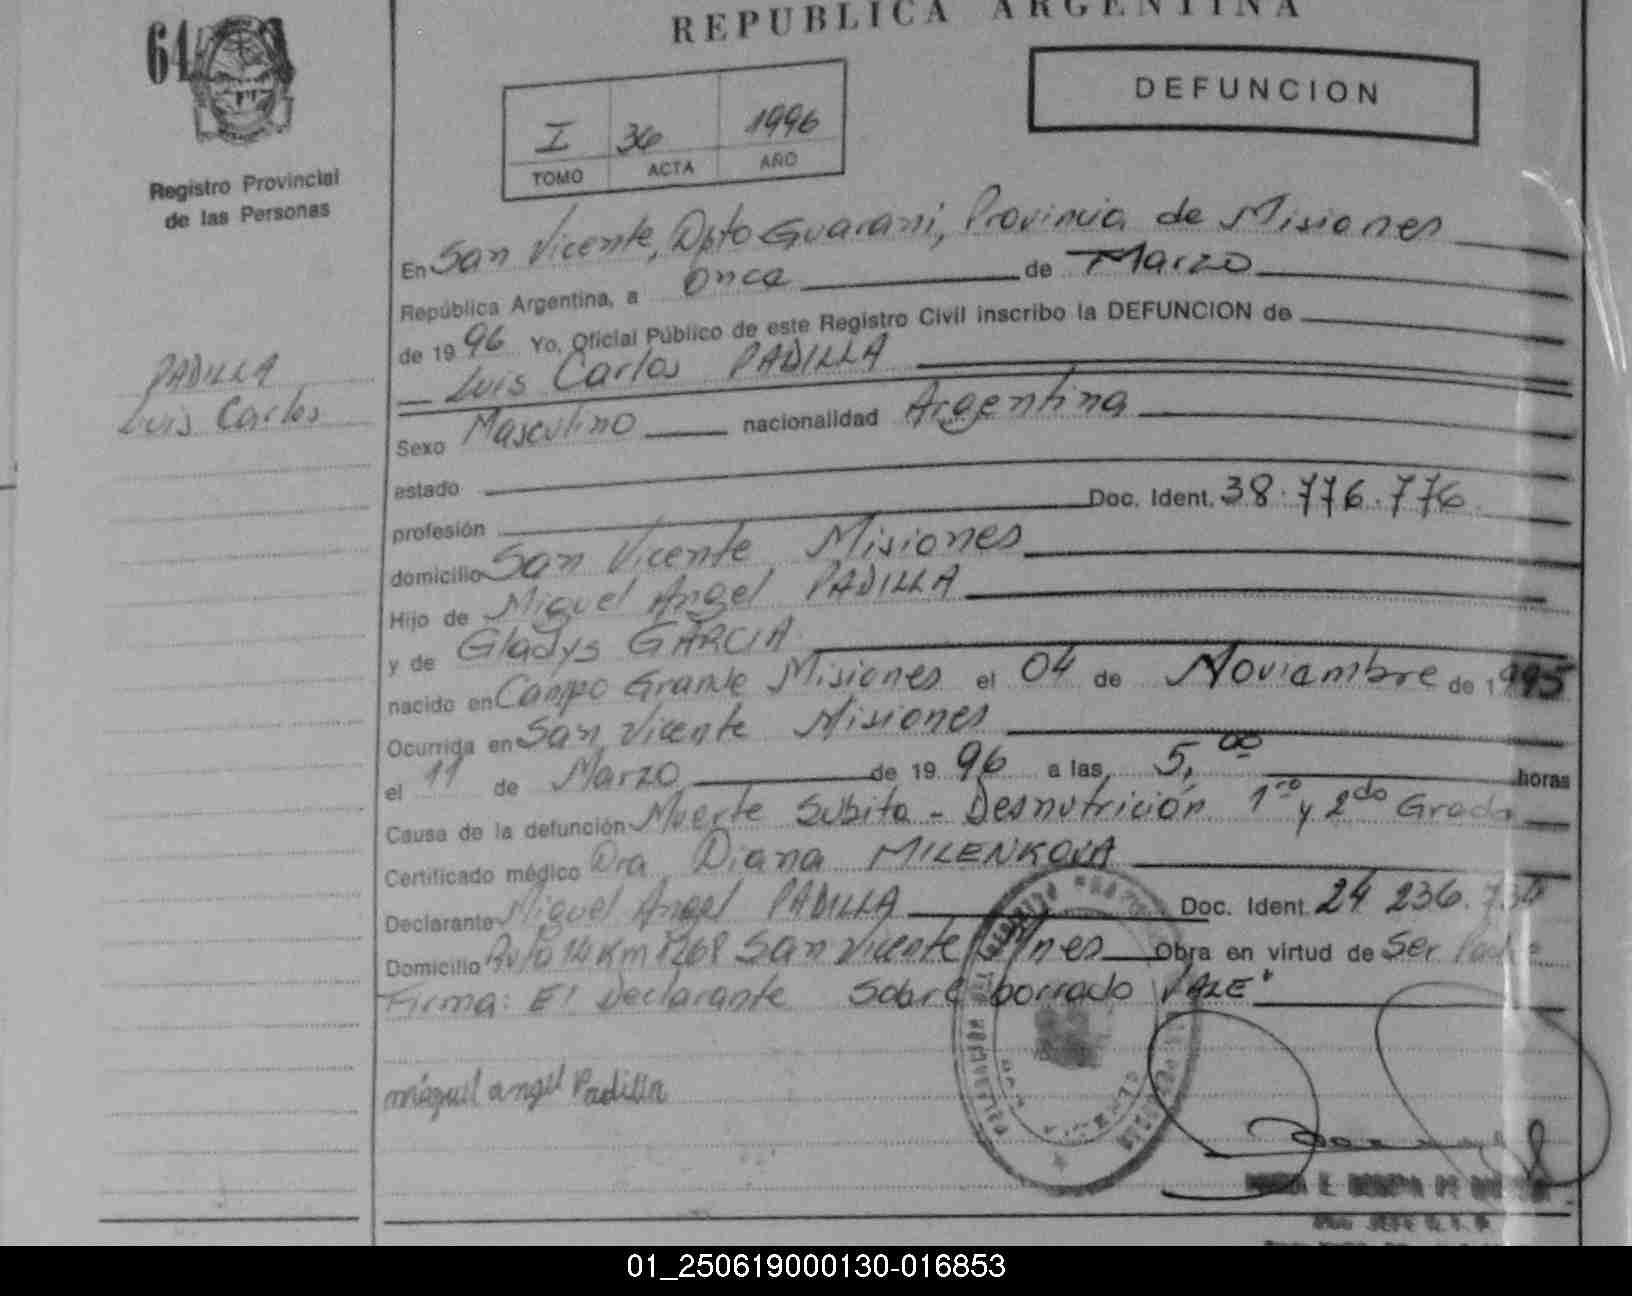 REPUBLICA ARGENTINA
64
DEFUNCION
I 36 1996
TOMO ACTA AÑO
Registro Provincial
de las Personas
En San Vicente, Dpto Guarani, Provincia de Misiones
República Argentina, a once de Marzo
de 1996 Yo, Oficial Público de este Registro Civil inscribo la DEFUNCION de
Luis Carlos PADILLA
PADILLA
Luis Carlos
Sexo Masculino nacionalidad Argentina
estado
profesión Doc. Ident. 38.776.776
domicilio San Vicente Misiones
Hijo de Miguel Angel PADILLA
y de Gladys GARCIA
nacido en Campo Grande Misiones el 04 de Noviembre de 1995
Ocurrida en San Vicente Misiones
el 11 de Marzo de 1996 a las 5,00 horas
Causa de la defunción Muerte Subita - Desnutrición 1ro y 2do Grado
Certificado médico Dra Diana MILENKOVA
Declarante Miguel Angel PADILLA Doc. Ident. 24 236.
Domicilio Ruta 14 Km 1268 San Vicente Mnes Obra en virtud de Ser Padre
Firma: El Declarante Sobre borrado VALE"
miguel angel Padilla
01_250619000130-016853